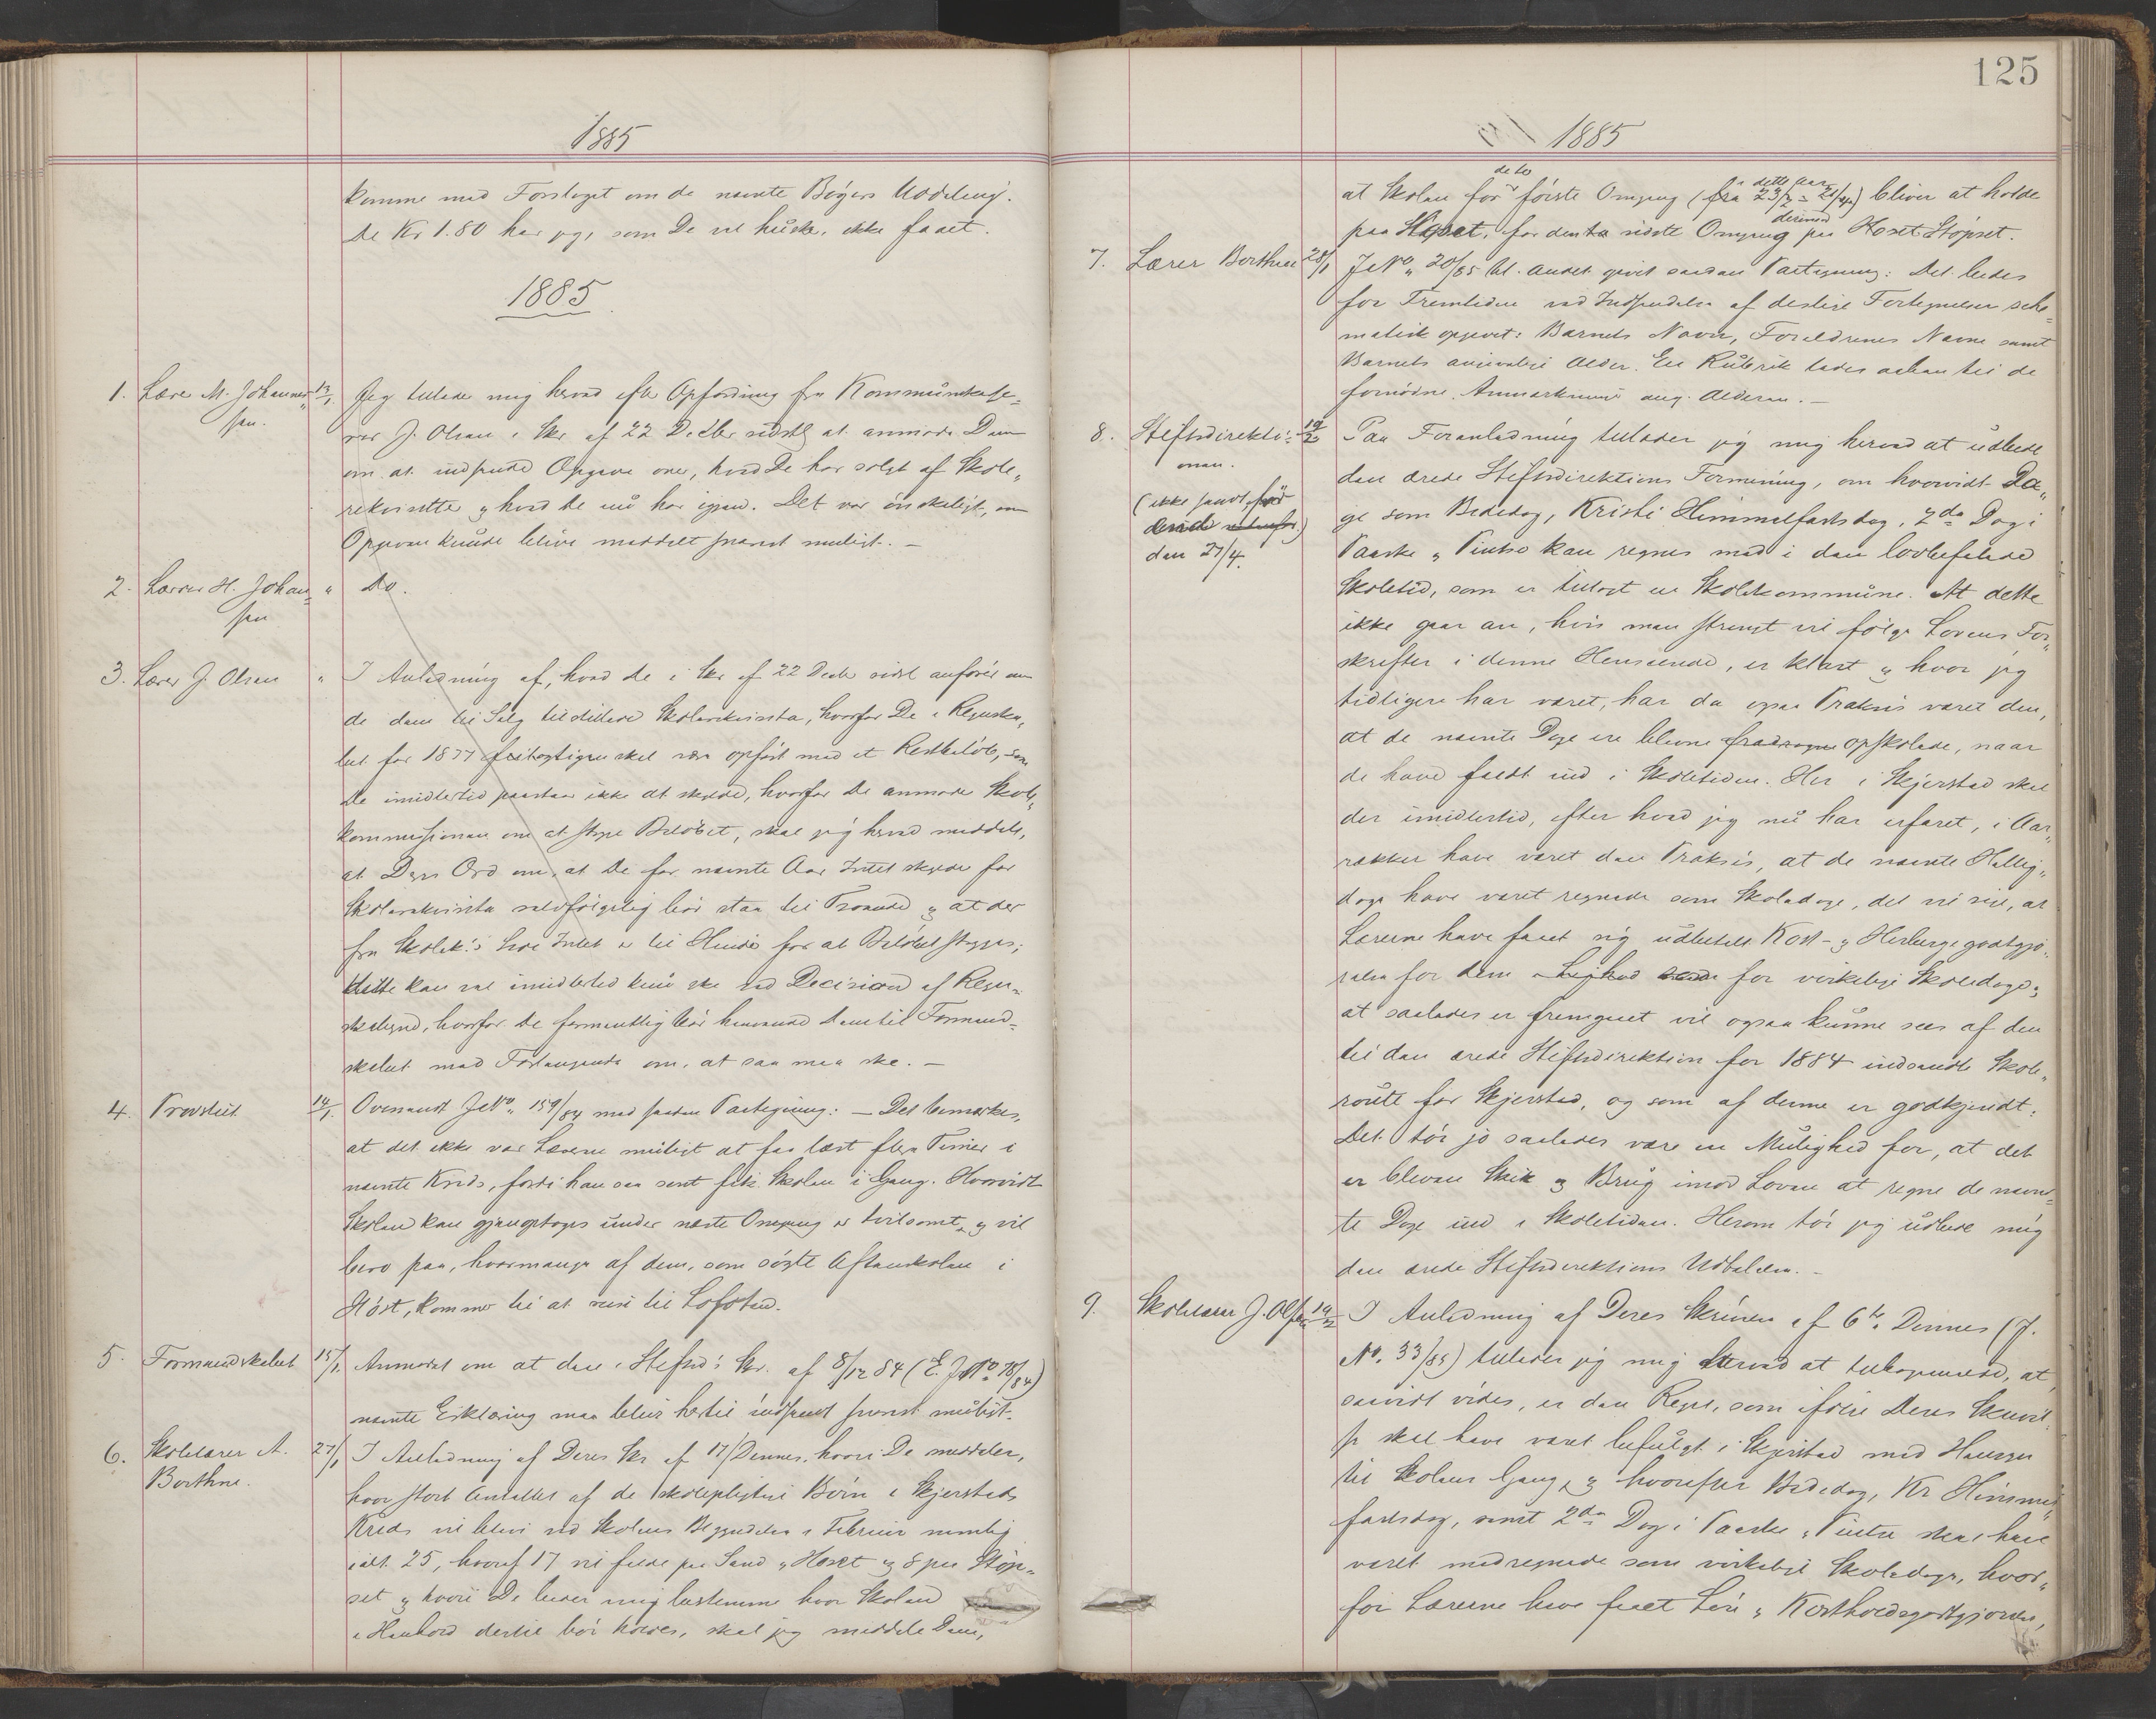 1885
komme med Forslaget om de nævnte Bøgers Uddeling.
De Kr 1.80 har jeg, som De vil huske, ikke faaet.
1885
1. Lærer M. Johannes- 13/1. Jeg tillader mig herved efter Opfordring fra Kommunekasse-
sen. rer J. Olsen i Skr. af 22 Decbr sidstl. at anmode Dem
om at indsende Opgave over, hvad De har solgt af Skole-
rekvisitter og hvad De nu har igjen. Det var ønskeligt, om
Opgaven kunde blive meddelt snarest muligt. —
2. Lærer H. Johan- " Do.
sen
3. Lærer J. Olsen " I Anledning af, hvad De i Skr af 22 Decbr sidst anfører om
de dem til Salg tilstillede Skolerekvisita, hvorfor De i Regnska-
bet for 1877 skal være opført med et Restbeløb, som
De imidlertid paastaar ikke at skylde, hvorfor De anmoder Skole-
kommissionen om at stryge Beløbet, skal jeg herved meddele,
at Deres Ord om, at De for nævnte Aar Intet skylder for
Skolerekvisita selvfølgelig bør staa til Troende og at der
fra Skolek.s Side Intet er til Hinder for at Beløbet stryges;
dette kan vel imidlertid kun ske ved Decision af Regn-
skabet, hvorfor De formentlig bør henvende Dem til Formand-
skabet med Forlangende om, at saa maa ske. —
4. Provstiet 14/1. Oversendt JNo. 159/84 med saadan Paategning: — Det bemærkes,
at det ikke var Læreren muligt at faa læst flere Timer i
nævnte Kreds, fordi han saa sent fik Skolen i Gang. Hvorvidt
Skolen kan gjenoptages under næste Omgang er tvilsomt, og vil
bero paa, hvormange af dem, som søgte Aftenskolen i
Høst, kommer til at reise til Lofoten.
5. Formandskabet 15/1. Anmodet om at den i Stiftsd.s Skr. af 8/12 84 (E. JNo 78/84)
nævnte Erklæring maa blive hertil indsendt snarest muligt.
6. Skolelærer A. 27/1 I Anledning af Deres Skr af 17/ Dennes, hvori De meddeler,
Borthne. hvor stort Antallet af de skolepligtige Børn i Skjerstads
Kreds vil blive ved Skolens Begyndelse i Februar nemlig
ialt 25, hvoraf 17 vil falde paa Sand og Høset og 8 paa Støp-
set og hvori De beder mig bestemme hvor Skolen
i Henhold dertil bør holdes, skal jeg meddele Dem,
125
1885
dette
i dette Aar
at Skolen for første Omgang (fra 23/2 – 21/4) bliver at holde
derimod
paa Høset, for den sidste Omgang paa Støpset.
7. Lærer Borthne 28/1 JNo. 20/85 bl. andet givet saadan Paategning: Det bedes
for Fremtiden ved Indsendelse af deslige Fortegnelser sche-
matisk opgivet: Barnets Navn, Forældrenes Navne samt
Barnets Alder. En Rubrik lades aaben til de
fornødne Anmærkninger ang. Alderen. —
8. Stiftsdirektio- 19/2 Paa Foranledning tillader jeg mig herved at udbede
nen. den ærede Stiftsdirektions Formening, om hvorvidt Da-
(ikke sendt før
ge som Bededag, Kristi Himmelfartsdag, 2den Dag i
den 27/4.)
Paaske og Pintse kan regnes med i den lovbefalede
Skoletid, som er tillagt en Skolekommune. At dette
ikke gaar an, hvis man strengt vil følge Lovens For-
skrifter i denne Henseende, er klart og hvor jeg
tidligere har været, har da ogsaa Praksis været den,
at de nævnte Dage ere blevne opskolede, naar
de have faldt ind i Skoletiden. Her i Skjerstad skal
der imidlertid, efter hvad jeg nu har erfaret, i Aar-
rækker have været den Praksis, at de nævnte Hellig-
dage have været regnede som Skoledage, det vil sige, at
Lærerne have faaet sig udbetalt Kost- og Herbergegodtgjø-
relse for dem for virkelige Skoledage;
at saaledes er fremgaaet vil ogsaa kunne sees af den
til den ærede Stiftsdirektion for 1884 indsendte Skole-
route for Skjerstad, og som af denne er godkjendt.
Det tør jo saaledes være en Mulighed for, at det
er bleven Skik og Brug imod Loven at regne de nævn-
te Dage ind i Skoletiden. Herom tør jeg udbede mig
den ærede Stiftsdirektions Udtalelse. —
9. Skolelærer J. Olsen 19/2 I Anledning af Deres Skrivelse af 6te Dennes (J.
No. 33/85) tillader jeg mig herved at tilkjendegive, at
saavidt vides, er den Regel, som ifølge Deres Skrivel-
se skal have været befulgt i Skjerstad med Hensyn
til Skolens Gang, og hvorefter Bededag, Kr Himmel-
fartsdag, samt 2den Dag i Paaske og Pintse skal have
været medregnede som virkelige Skoledage, hvor-
for Lærerne have faaet Løn og Kostholdsgodtgjørelse,